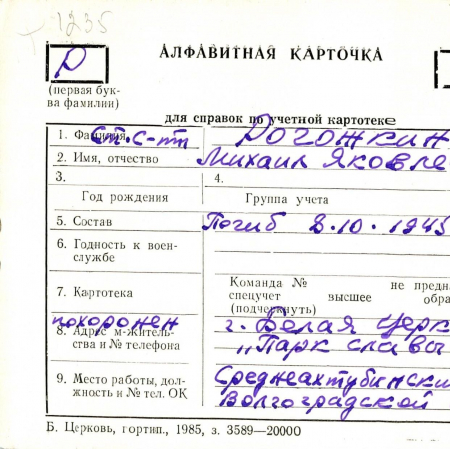 1235
Р
АЛФАВИТНАЯ КАРТОЧКА
(первая бук-
ва фамилии)
для справок по учетной картотеке
1. Фамилия Ст. с-нт Рогожкин
2. Имя, отчество Михаил Яковле
3. 4.
Год рождения Группа учета
5. Состав Погиб 8.10.1943
6. Годность к воен-
службе
Команда № не предна
7. Картотека спецучет высшее обра
(подчеркнуть)
похоронен г. Белая Церк
8. Адрес м-житель-
ства и № телефона „Парк славы
9. Место работы, дол- Среднеахтубински
жность и № тел. ОК Волгоградской
Б. Церковь, гортип., 1985, з. 3589—20000